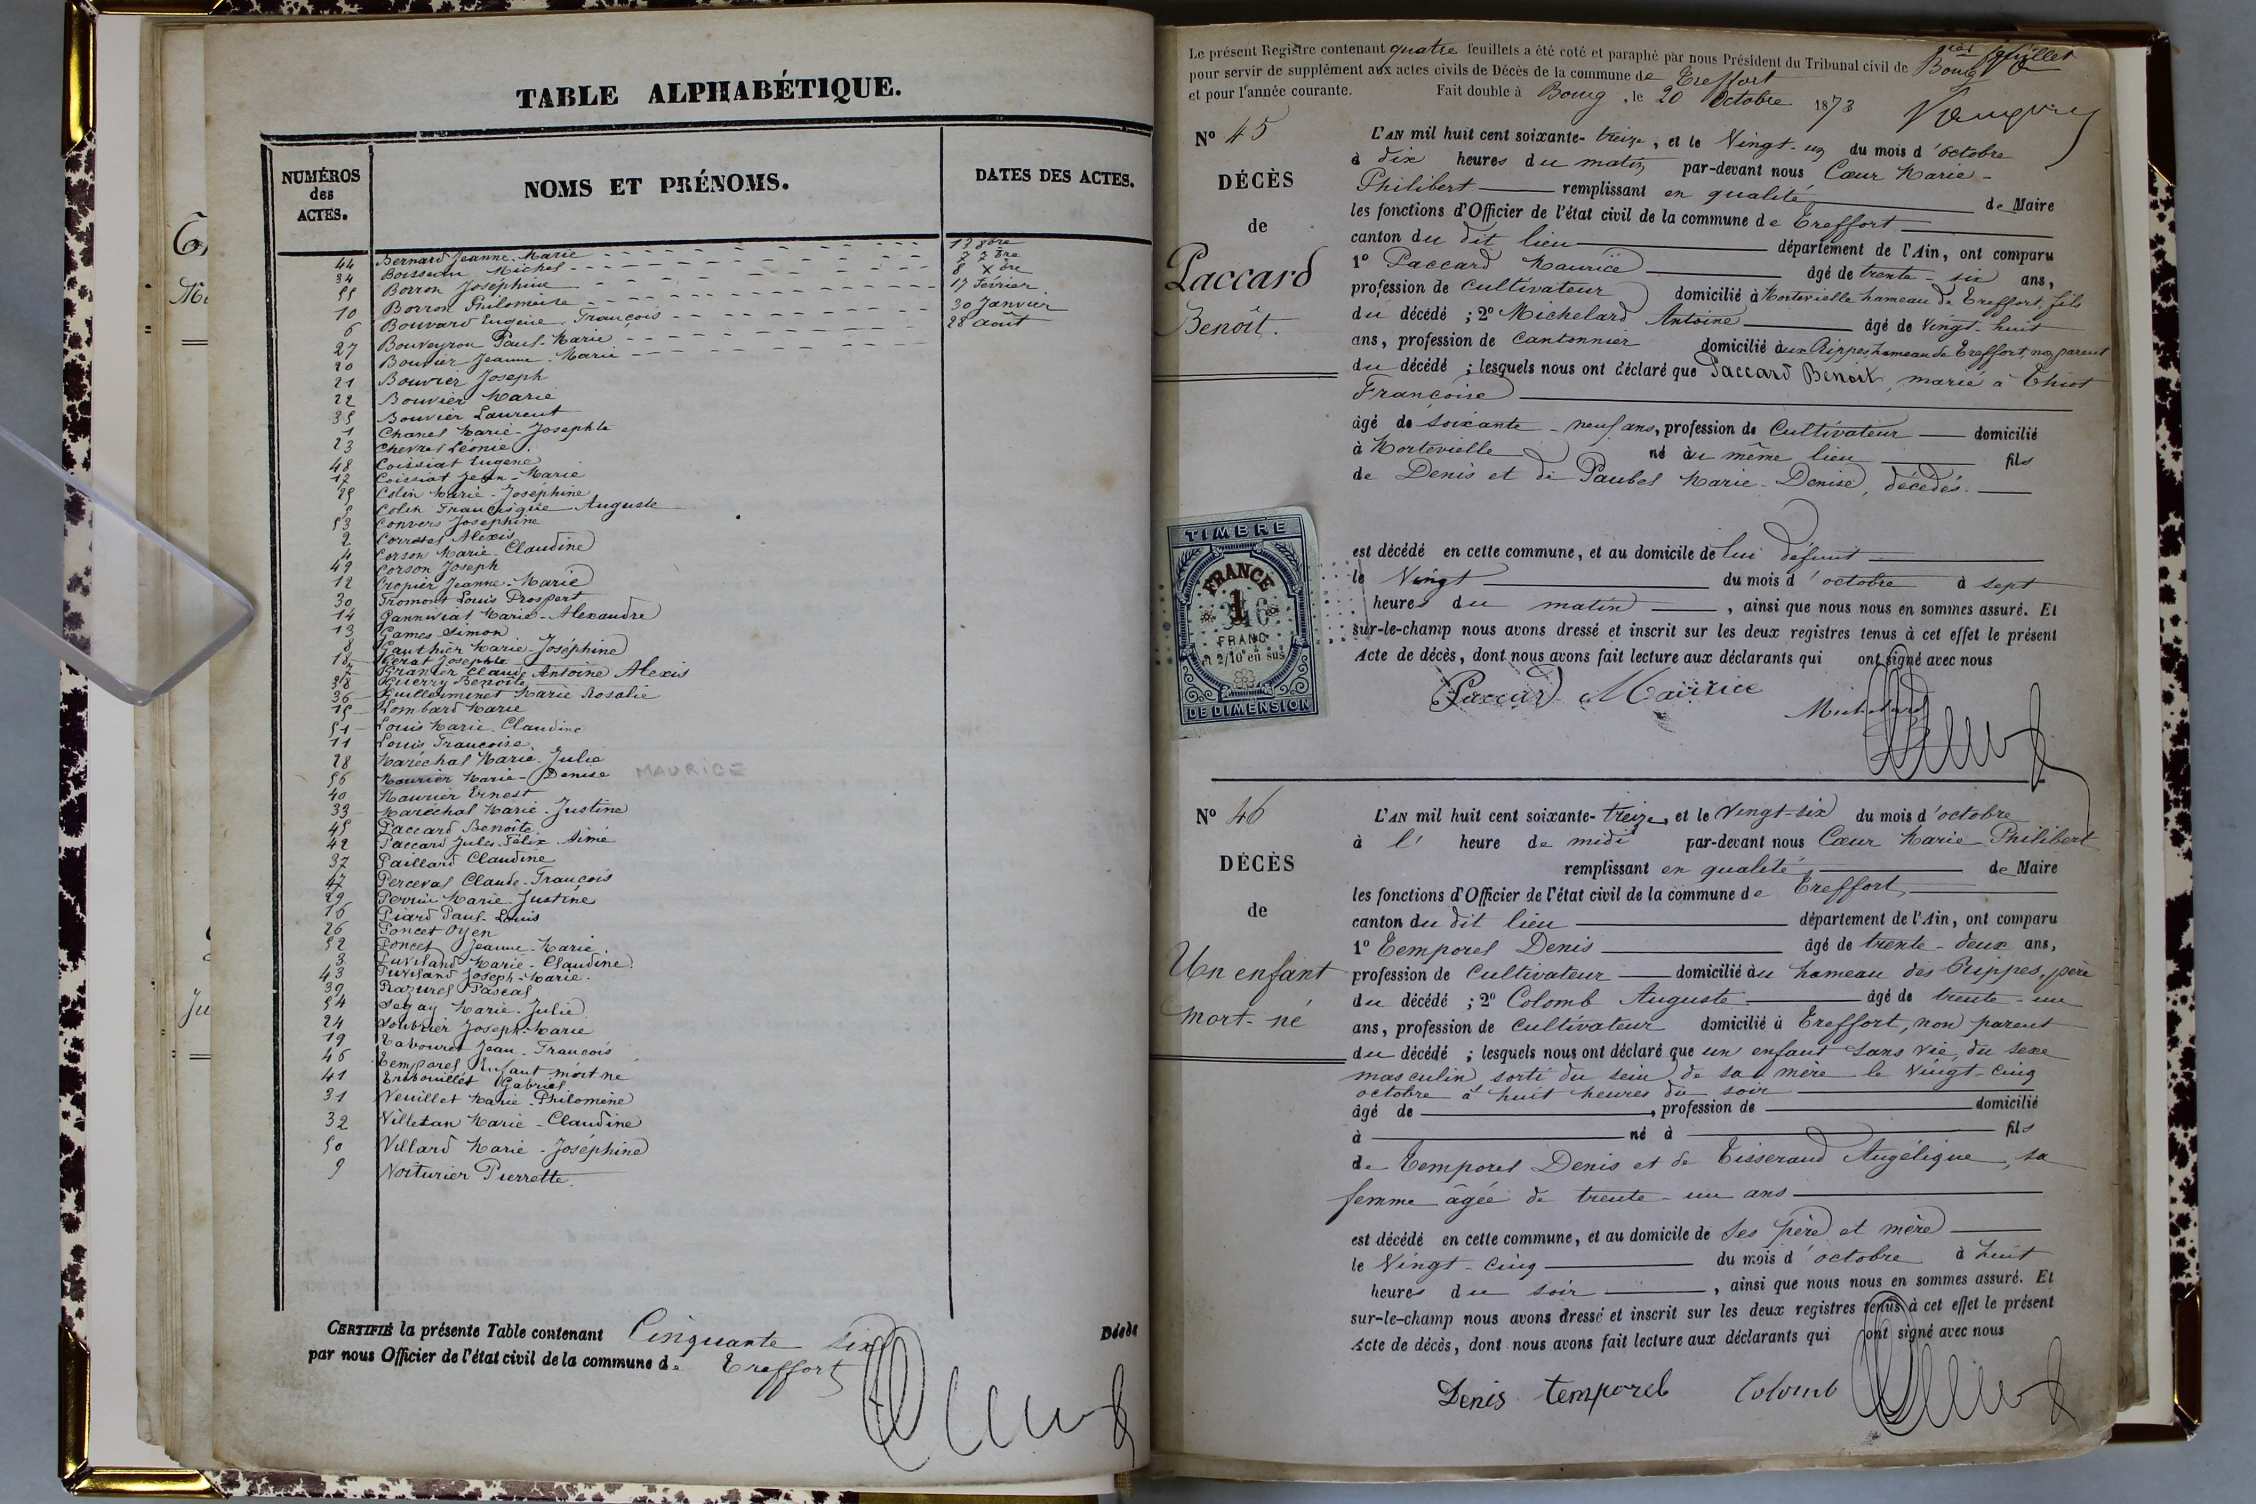 TABLE ALPHABÉTIQUE.
NUMÉROS des ACTES.
NOMS ET PRÉNOMS.
DATES DES ACTES.
44 Bernard Jeanne-Marie
34 Boisseau Michel
55 Borron Joséphine 8 Xbre
10 Borron Philomène 17 février
6 Bouvard Eugène François 30 Janvier
27 Bouveyron Paul-Marie 28 août
20 Bouvier Jeanne-Marie
21 Bouvier Joseph
22 Bouvier Marie
35 Bouvier Laurent
1 Chanel Marie-Josephte
23 Chevret Léonie
48 Coissiat Eugène
17 Coissiat Jean-Marie
25 Colin Marie-Joséphine
5 Colin Francisque Auguste
53 Convers Josephine
2 Alexis
4 Corson Marie-Claudine
49 Corson Joseph
12 Cropier Jeanne-Marie
30 Fromont Louis Prospert
14 Marie-Alexandre
13 Games Simon
8 Gauthier Marie-Joséphine
18 Josephte
7 Granier Claude Antoine Alexis
38 Guerry Benoîte
36 Guilleminet Marie Rosalie
15 Lombard Marie
51 Louis Marie-Claudine
11 Louis Françoise
28 Maréchal Marie-Julie
56 Maurier Marie-Denise MAURICE
40 Maurier Ernest
33 Maréchal Marie-Justine
45 Paccard Benoîte
42 Paccard Jules Félix Aimé
37 Paillard Claudine
47 Perceval Claude-François
29 Perrin Marie Justine
16 Piard Paul-Louis
26 Poncet Oyen
52 Poncet Jeanne-Marie
3 Puvilland Marie-Claudine
43 Puvilland Joseph-Marie
39 Razurel Pascal
54 Segay Marie-Julie
24 Soubrier Joseph-Marie
19 Tabouret Jean-François
46 Temporel Enfant mort né
41 Trebouillet Gabriel
31 Veuillet Marie-Philomène
32 Villetan Marie-Claudine
50 Villard Marie-Joséphine
9 Voiturier Pierrette
CERTIFIÉ la présente Table contenant Cinquante six Décès
par nous Officier de l'état civil de la commune de Treffort
Le présent Registre contenant quatre feuillets a été coté et paraphé par nous Président du Tribunal civil de Bourg
pour servir de supplément aux actes civils de Décès de la commune de Treffort
et pour l'année courante. Fait double à Bourg, le 20 Octobre 1873
N° 45
DÉCÈS
de
Paccard
Benoît.
L'AN mil huit cent soixante-treize, et le Vingt-un du mois d'octobre
à dix heures du matin par-devant nous Cœur Marie-
Philibert remplissant en qualité de Maire
les fonctions d'Officier de l'état civil de la commune de Treffort
canton du dit lieu département de l'Ain, ont comparu
1° Paccard Maurice âgé de trente-six ans,
profession de Cultivateur domicilié à Montevielle hameau de Treffort, fils
du décédé ; 2° Michelard Antoine âgé de Vingt-huit
ans, profession de Cantonnier domicilié aux Rippes, hameau de Treffort, non parent
du décédé ; lesquels nous ont déclaré que Paccard Benoit, marié à Thiot
Françoise
âgé de soixante-neuf ans, profession de Cultivateur domicilié
à Montevielle né au même lieu fils
de Denis et de Paubel Marie-Denise, décédés.
est décédé en cette commune, et au domicile de lui défunt
le Vingt du mois d'octobre à sept
heures du matin, ainsi que nous nous en sommes assuré. Et
sur-le-champ nous avons dressé et inscrit sur les deux registres tenus à cet effet le présent
Acte de décès, dont nous avons fait lecture aux déclarants qui ont signé avec nous
Paccard Maurice
Michelard
TIMBRE
FRANCE
1
FRANC
et 2/10 en sus
DE DIMENSION
N° 46
DÉCÈS
de
Un enfant
mort-né
L'AN mil huit cent soixante-treize, et le Vingt-six du mois d'octobre
à l' heure de midi par-devant nous Cœur Marie Philibert
remplissant en qualité de Maire
les fonctions d'Officier de l'état civil de la commune de Treffort,
canton du dit lieu département de l'Ain, ont comparu
1° Temporel Denis âgé de trente-deux ans,
profession de Cultivateur domicilié au hameau des Rippes, père
du décédé ; 2° Colomb Auguste âgé de trente-un
ans, profession de Cultivateur domicilié à Treffort, non parent
du décédé ; lesquels nous ont déclaré que un enfant sans vie, du sexe
masculin sorti du sein de sa mère le Vingt-cinq
octobre à huit heures du soir
âgé de , profession de domicilié
à né à fils
de Temporel Denis et de Tisserand Angélique, sa
femme âgée de trente-un ans
est décédé en cette commune, et au domicile de ses père et mère
le Vingt-cinq du mois d'octobre à huit
heures du soir, ainsi que nous nous en sommes assuré. Et
sur-le-champ nous avons dressé et inscrit sur les deux registres tenus à cet effet le présent
Acte de décès, dont nous avons fait lecture aux déclarants qui ont signé avec nous
Denis temporel Colomb